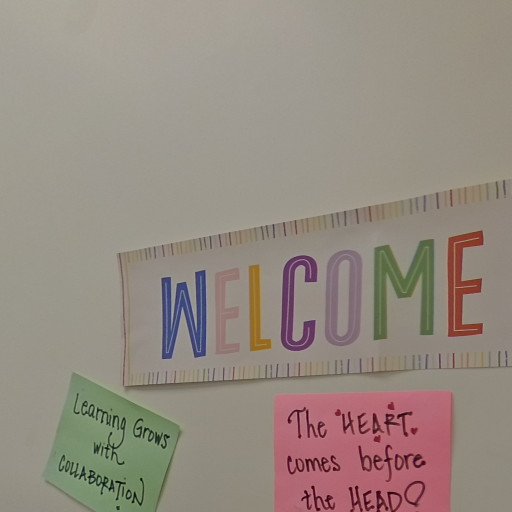 WELCOME
Learning Grows
with
COLLABORATION
The HEART
comes before
the HEAD